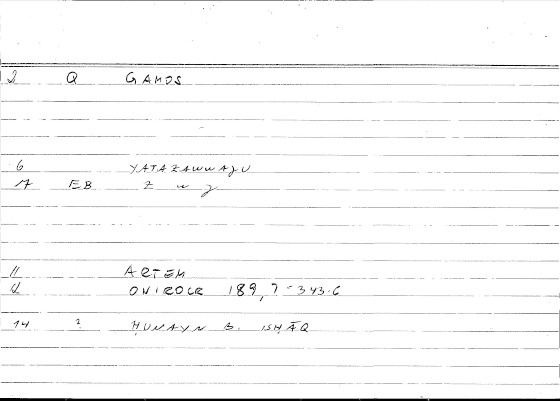 2 Q GAMOS
6 YATAZAWWAJU
17 EB z w j
11 ARTEM
12 ONIROCR 189,7-343.6
14 ? ḤUNAYN B. ISḤĀQ